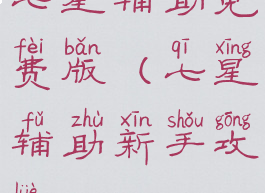 七星辅助免
fèi bǎn qī xīng
费版(七星
fǔ zhù xīn shǒu gōng
辅助新手攻
lüè